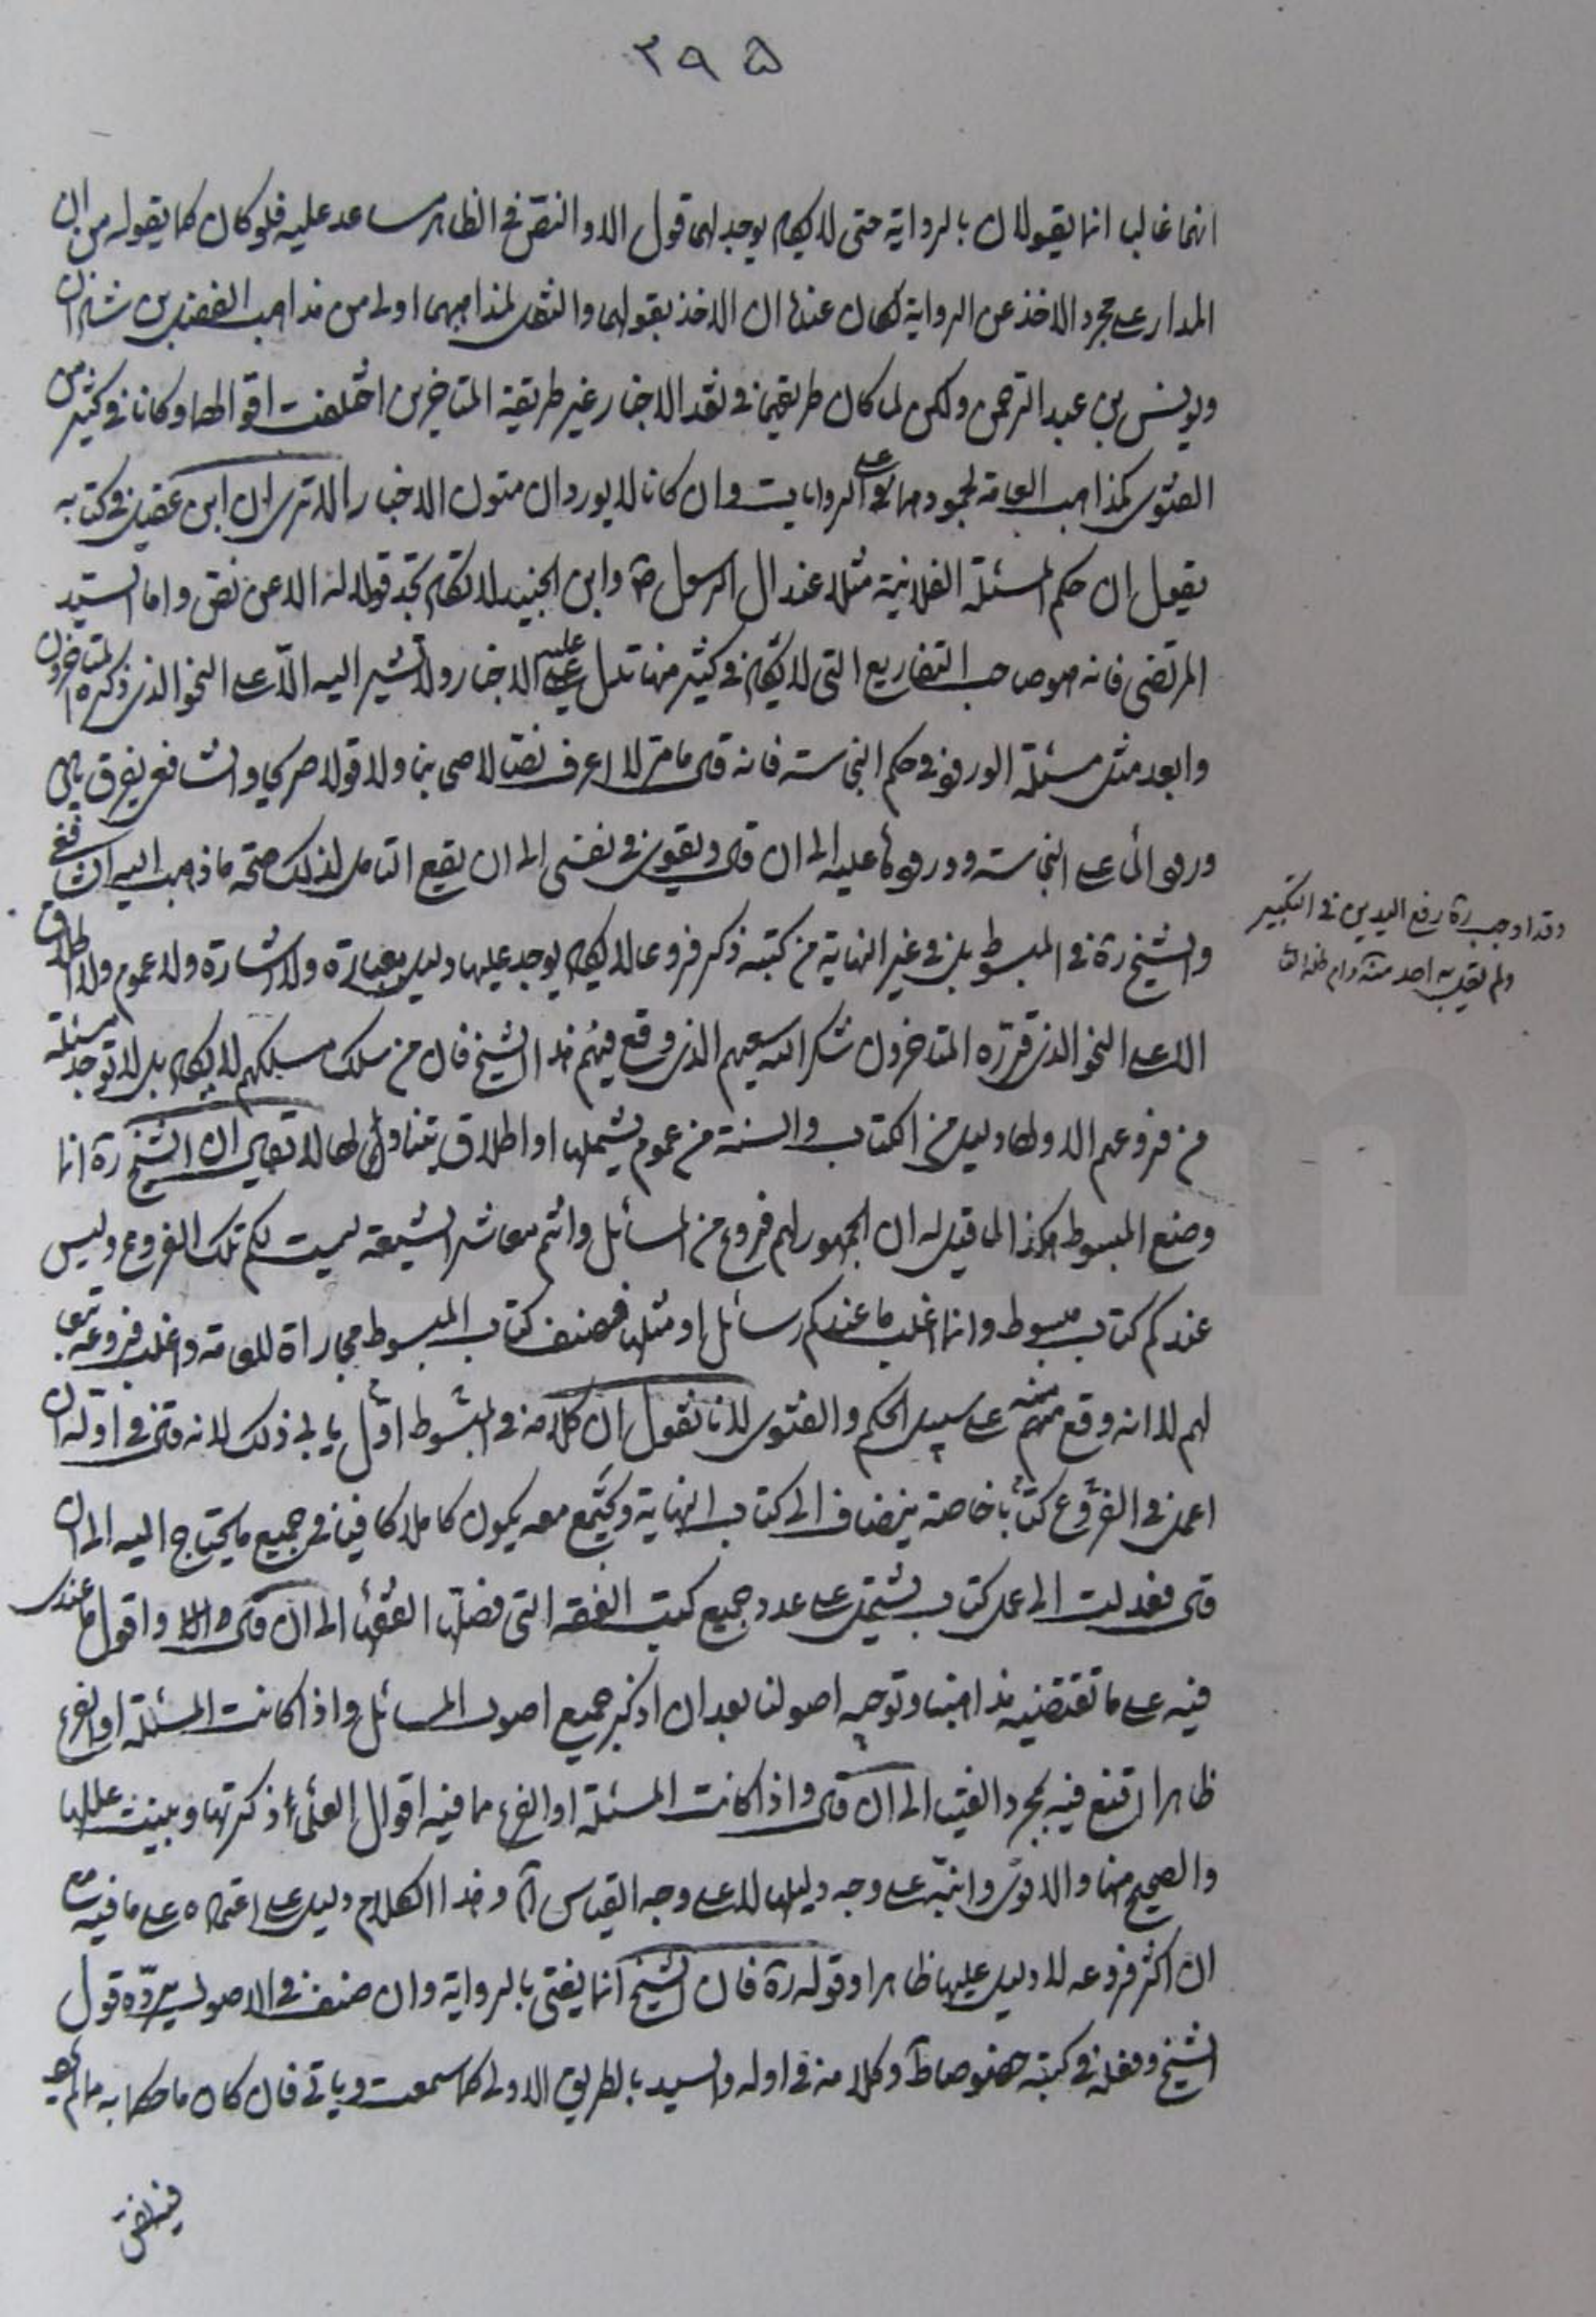 ٣٩٥
انهما غالبا انما يقولان بالرواية حتى لا يكاد يوجد لهما قول الا والنص في الظاهر مساعد عليه فلو كان كما يقوله من ان
المدار على مجرد الاخذ عن الرواية لكان عندنا ان الاخذ بقولهما والنقل لمذاهبهما اولى من مذاهب الفضل بن شاذان
ويونس بن عبد الرحمن ولكن لما كان طريقتهما في نقد الاخبار غير طريقة المتاخرين اختلفت اقوالهما وكانا في كثير من
الفتوى كمذاهب العامة لجمودهما على الروايات وان كانا لا يوردان متون الاخبار الا ترى ان ابن عقيل في كتابه
يقول ان حكم المسئلة الفلانية مثلا عند ال الرسول ص وابن الجنيد لا تكاد تجد قولا له الا عن نص واما السيد
المرتضى فانه هو صاحب التفاريع التي لا يكاد في كثير منها تدل عليه الاخبار ولا تشير اليه الا على النحو الذي ذكره المتاخرون
وابعد مثل مسئلة الورود في حكم النجاسة فانه قال ما مر لا اعرف نصا لاصحابنا ولا قولا صريحا والشافعي يفرق بين
ورود الماء على النجاسة وورودها عليه الى ان قال ويقوى في نفسي الى ان يقع التامل لذلك صحة ما ذهب اليه الشافعي
والشيخ ره في المبسوط بل في غير النهاية من كتبه ذكر فروعا لا يكاد يوجد عليها دليل بعبارة ولا اشارة ولا عموم ولا اطلاق
الا على النحو الذي قرره المتاخرون شكر الله سعيهم الذي وقع فيهم هذا الشيخ فان من سلك مسلكهم لا يكاد بل لا توجد مسئلة
من فروعهم الا ولها دليل من الكتاب والسنة من عموم يشملها او اطلاق يتناولها لا يقال ان الشيخ ره انما
وضع المبسوط هكذا لما قيل له ان الجمهور لهم فروع من المسائل وانتم معاشر الشيعة ليست لكم تلك الفروع وليس
عندكم كتاب مبسوط وانما اغلب ما عندكم رسائل او مثلها فصنف كتاب المبسوط مجاراة للعامة واغلب فروعه تبعا
لهم لا انه وقع منه على سبيل الحكم والفتوى لانا نقول ان كلامه في المبسوط اول يابى ذلك لانه قال في اوله ان
اعمل في الفروع كتابا خاصة ينضاف الى كتاب النهاية ويجتمع معه يكون كاملا كافيا في جميع ما يحتاج اليه الى ان
قال فعدلت الى عمل كتاب يشتمل على عدد جميع كتب الفقه التي فصلها الفقهاء الى ان قال واقول ما عندي
فيه على ما تقتضيه مذاهبنا وتوجبه اصولنا بعد ان اذكر جميع اصول المسائل واذا كانت المسئلة او الفرع
ظاهرا اقنع فيه بمجرد الفتيا الى ان قال واذا كانت المسئلة او الفرع مما فيه اقوال العلماء ذكرتها وبينت عللها
والصحيح منها والاقوى وانبه على وجه دليلها لا على وجه القياس وهذا الكلام دليل على اعتماده على ما فيه مع
ان اكثر فروعه لا دليل عليها ظاهرا وقوله ره فان الشيخ انما يفتي بالرواية وان صنف في الاصول يرده قول
الشيخ وفعله في كتبه خصوصا وكلامه في اوله والسيد بالطريق الاولى كما سمعت وياتي فان كان ما حكما به مما لم يوجد
وقد اوجب ره رفع اليدين في التكبير
ولم يقل به احد منا
فيه نص